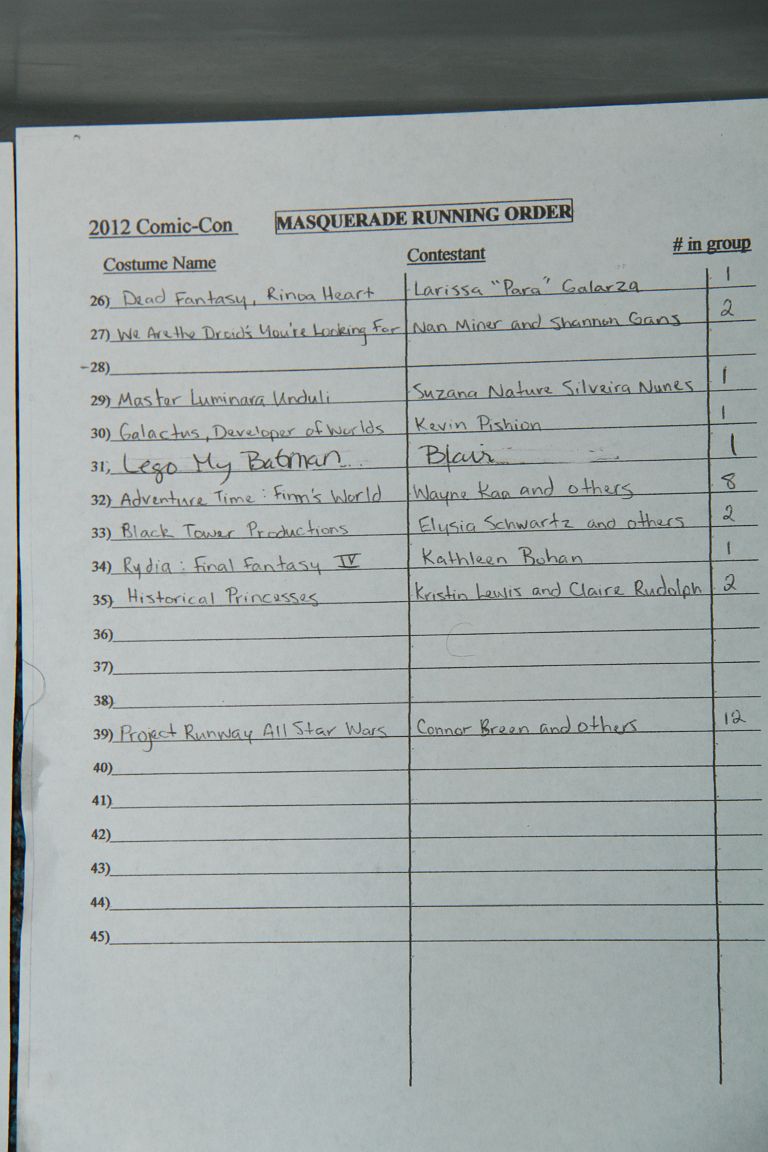 2012 Comic-Con MASQUERADE RUNNING ORDER
Costume Name Contestant # in group
26) Dead Fantasy, Rinoa Heart Larissa "Para" Galarza 1
27) We Are the Droids You're Looking For Nan Miner and Shannon Gans 2
28)
29) Master Luminara Unduli Suzana Nature Silveira Nunes 1
30) Galactus, Developer of Worlds Kevin Pishion 1
31, Lego My Batman Blair 1
32) Adventure Time: Finn's World Wayne Kaa and others 8
33) Black Tower Productions Elysia Schwartz and others 2
34) Rydia: Final Fantasy IV Kathleen Bohan 1
35) Historical Princesses Kristin Lewis and Claire Rudolph 2
36)
37)
38)
39) Project Runway All Star Wars Connor Breen and others 12
40)
41)
42)
43)
44)
45)